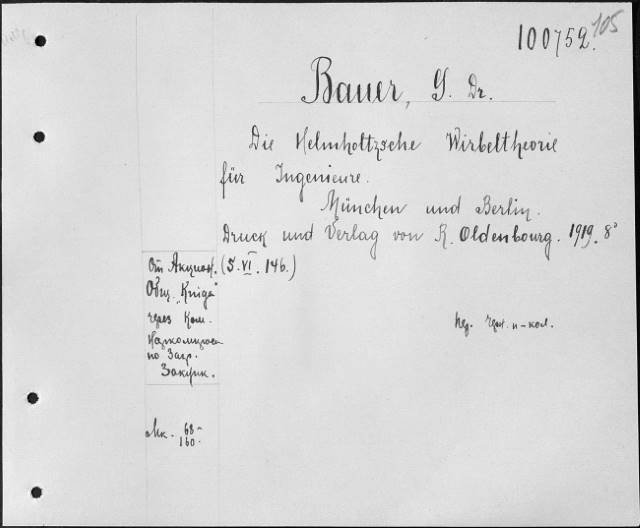 100752.
105
Bauer, G. Dr.
Die Helmholtzsche Wirbeltheorie
für Ingenieure.
München und Berlin.
Druck und Verlag von R. Oldenbourg. 1919. 8°
(S. VI. 146.)
От Акцион.
Общ. „Kniga"
через Ком.
по Загр.
Закупк.
Мк. 68-
160-